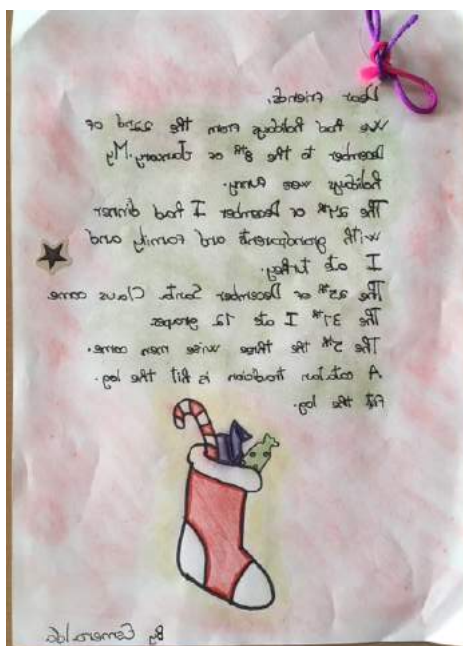 Dear Friends,
We had holidays from the 22nd of
December to the 8th of January. My
holidays were funny.
The 24th of December I had dinner
with grandparents and family and
I ate turkey.
The 25th of December Santa Claus came.
The 31th I ate 12 grapes
The 5th the three wise men came.
A catalan tradicion is hit the log.
hit the log.
By Esmeralda